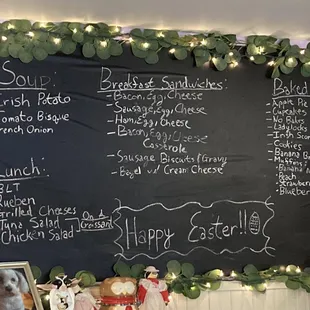 Soup:
Irish Potato
Tomato Bisque
French Onion
Lunch:
BLT
Rueben
Grilled Cheeses
Tuna Salad
Chicken Salad
On A
Croissant
Breakfast Sandwiches:
- Bacon, Egg, Cheese
- Sausage, Egg, Cheese
- Ham, Egg, Cheese
- Bacon, Egg, Cheese
Casserole
- Sausage Biscuits / Gravy
- Bagel w/ Cream Cheese
Happy Easter!!
Baked
- Apple Pie
- Cupcakes
- No Bakes
- Lady Locks
- Irish
- Cookies
- Banana
- Muffins
- Banana
- Peach
- Strawber
- Blueber